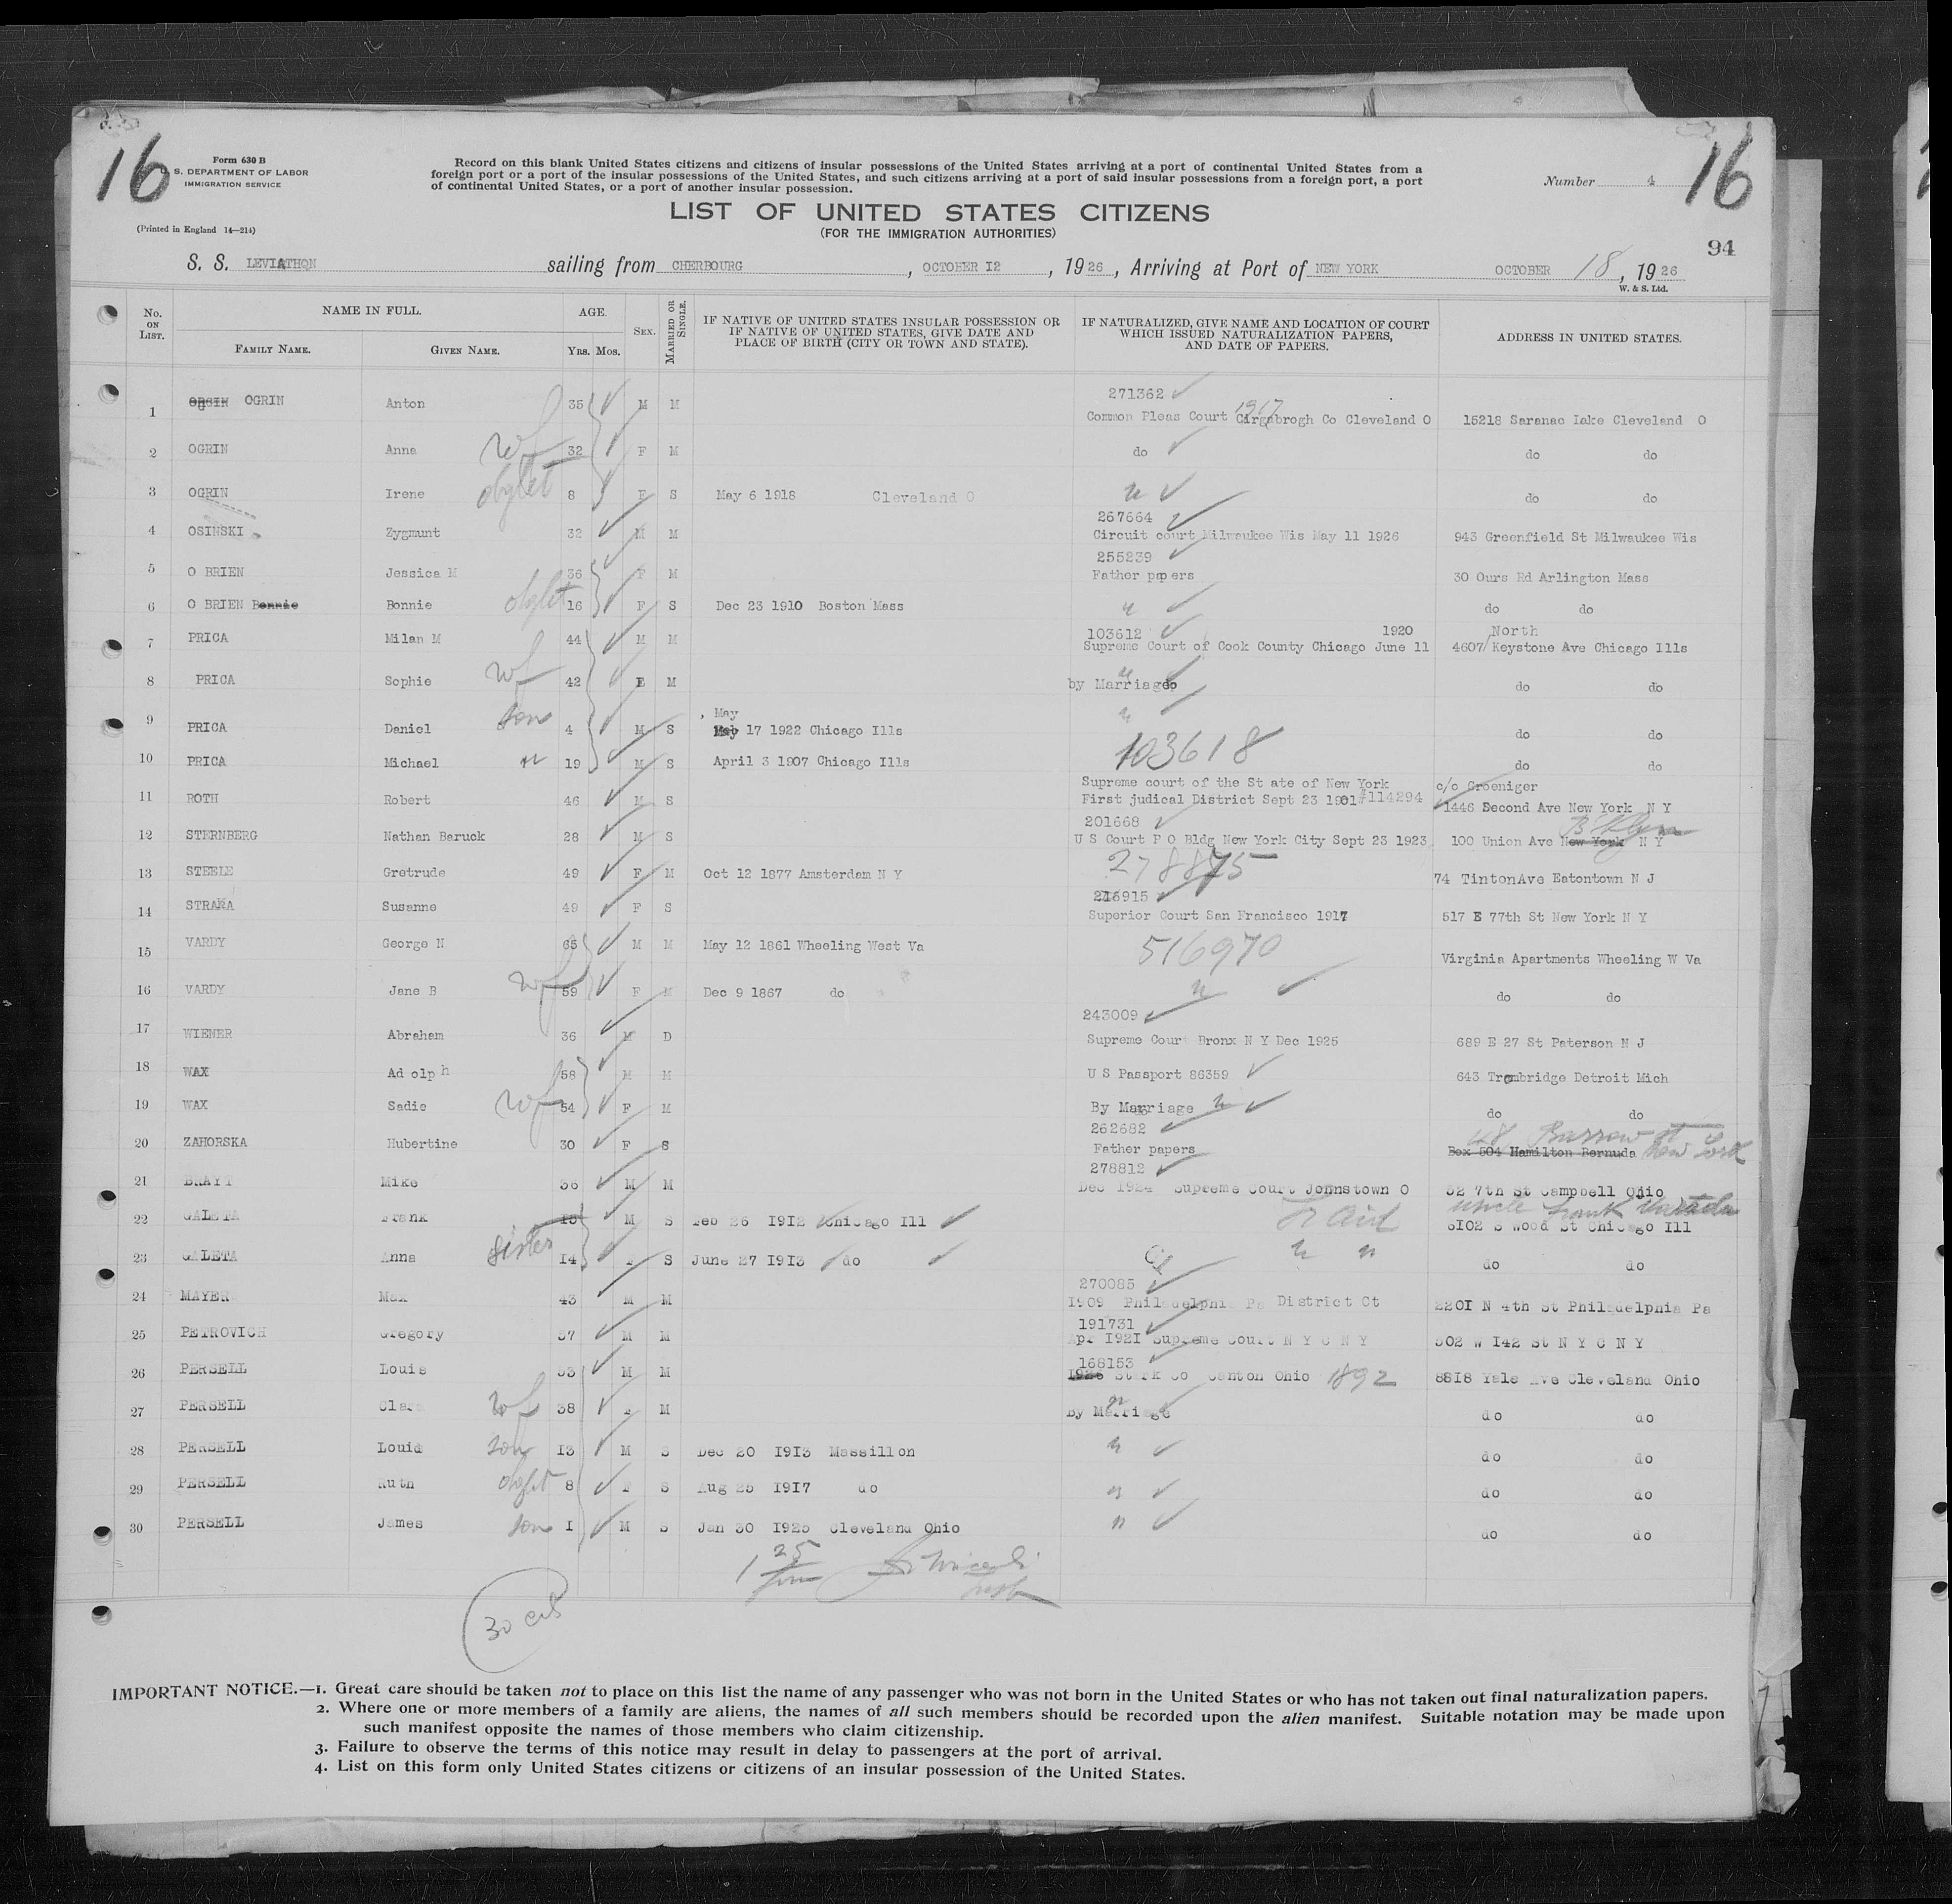 16
Form 630 B
S. DEPARTMENT OF LABOR
IMMIGRATION SERVICE
(Printed in England 14—214)
Record on this blank United States citizens and citizens of insular possessions of the United States arriving at a port of continental United States from a
foreign port or a port of the insular possessions of the United States, and such citizens arriving at a port of said insular possessions from a foreign port, a port
of continental United States, or a port of another insular possession.
Number 4
16
LIST OF UNITED STATES CITIZENS
(FOR THE IMMIGRATION AUTHORITIES)
94
S. S. LEVIATHON sailing from CHERBOURG, OCTOBER I2, 1926, Arriving at Port of NEW YORK OCTOBER 18, 1926
W. & S. Ltd.
No. ON LIST. NAME IN FULL. FAMILY NAME. GIVEN NAME. AGE. YRS. MOS. SEX. MARRIED OR SINGLE. IF NATIVE OF UNITED STATES INSULAR POSSESSION OR IF NATIVE OF UNITED STATES, GIVE DATE AND PLACE OF BIRTH (CITY OR TOWN AND STATE). IF NATURALIZED, GIVE NAME AND LOCATION OF COURT WHICH ISSUED NATURALIZATION PAPERS, AND DATE OF PAPERS. ADDRESS IN UNITED STATES.
271362
1 OGRIN Anton 35 M M Common Pleas Court 1917 Cirgabrogh Co Cleveland O 15218 Saranac Lake Cleveland O
2 OGRIN Anna wf 32 F M do do do
3 OGRIN Irene dghter 8 F S May 6 1918 Cleveland O " do do
267664
4 OSINSKI Zygmunt 32 M M Circuit court Milwaukee Wis May 11 1926 943 Greenfield St Milwaukee Wis
255239
5 O BRIEN Jessica M 36 F M Father papers 30 Ours Rd Arlington Mass
6 O BRIEN Bonnie Bonnie dghter 16 F S Dec 23 1910 Boston Mass " do do
103612 1920 North
7 PRICA Milan M 44 M M Supreme Court of Cook County Chicago June 11 4607/Keystone Ave Chicago Ills
8 PRICA Sophie wf 42 F M by Marriage do do do
May
9 PRICA Daniel son 4 M S 17 1922 Chicago Ills " do do
10 PRICA Michael " 19 M S April 3 1907 Chicago Ills 103618 do do
Supreme court of the St ate of New York c/o Groeniger
11 ROTH Robert 46 M S First judical District Sept 23 1901 #114294 1446 Second Ave New York N Y
201668 B'klyn
12 STERNBERG Nathan Baruck 28 M S U S Court P O Bldg New York City Sept 23 1923 100 Union Ave New York N Y
13 STEELE Gretrude 49 F M Oct 12 1877 Amsterdam N Y 278875 74 TintonAve Eatontown N J
216915
14 STRAKA Susanne 49 F S Superior Court San Francisco 1917 517 E 77th St New York N Y
15 VARDY George N 65 M M May 12 1861 Wheeling West Va 516970 Virginia Apartments Wheeling W Va
16 VARDY Jane B wf 59 F M Dec 9 1867 do " do do
243009
17 WIENER Abraham 36 M D Supreme Cour Bronx N Y Dec 1925 689 E 27 St Paterson N J
18 WAX Ad olp h 58 M M U S Passport 86359 643 Trombridge Detroit Mich
19 WAX Sadie wf 54 F M By Marriage " do do
262682 48 Barrow st New York
20 ZAHORSKA Hubertine 30 F S Father papers Box 504 Hamilton Bermuda
278812
21 BRAYT Mike 36 M M Dec 1924 Supreme Court Johnstown O 52 7th St Campbell Ohio
uncle Frank
22 GALETA Frank 15 M S Feb 26 I9I2 Chicago Ill 6I02 S Wood St Chicago Ill
23 GALETA Anna sister I4 F S June 27 I9I3 do " " do do
270085
24 MAYER Max 43 M M I909 Philadelphia Pa District Ct 220I N 4th St Philadelphia Pa
191731
25 PETROVICH Gregory 37 M M Apr I92I Supreme Court N Y C N Y 502 W I42 St N Y C N Y
168153
26 PERSELL Louis 53 M M 1926 Stark Co Canton Ohio 1892 88I8 Yale Ave Cleveland Ohio
27 PERSELL Clar wf 38 F M By Marriage " do do
28 PERSELL Louie son I3 M S Dec 20 I9I3 Massillon " do do
29 PERSELL Ruth dght 8 F S Aug 25 I9I7 do " do do
30 PERSELL James son I M S Jan 30 I925 Cleveland Ohio " do do
1 25
30 cit
IMPORTANT NOTICE.—1. Great care should be taken not to place on this list the name of any passenger who was not born in the United States or who has not taken out final naturalization papers.
2. Where one or more members of a family are aliens, the names of all such members should be recorded upon the alien manifest. Suitable notation may be made upon
such manifest opposite the names of those members who claim citizenship.
3. Failure to observe the terms of this notice may result in delay to passengers at the port of arrival.
4. List on this form only United States citizens or citizens of an insular possession of the United States.